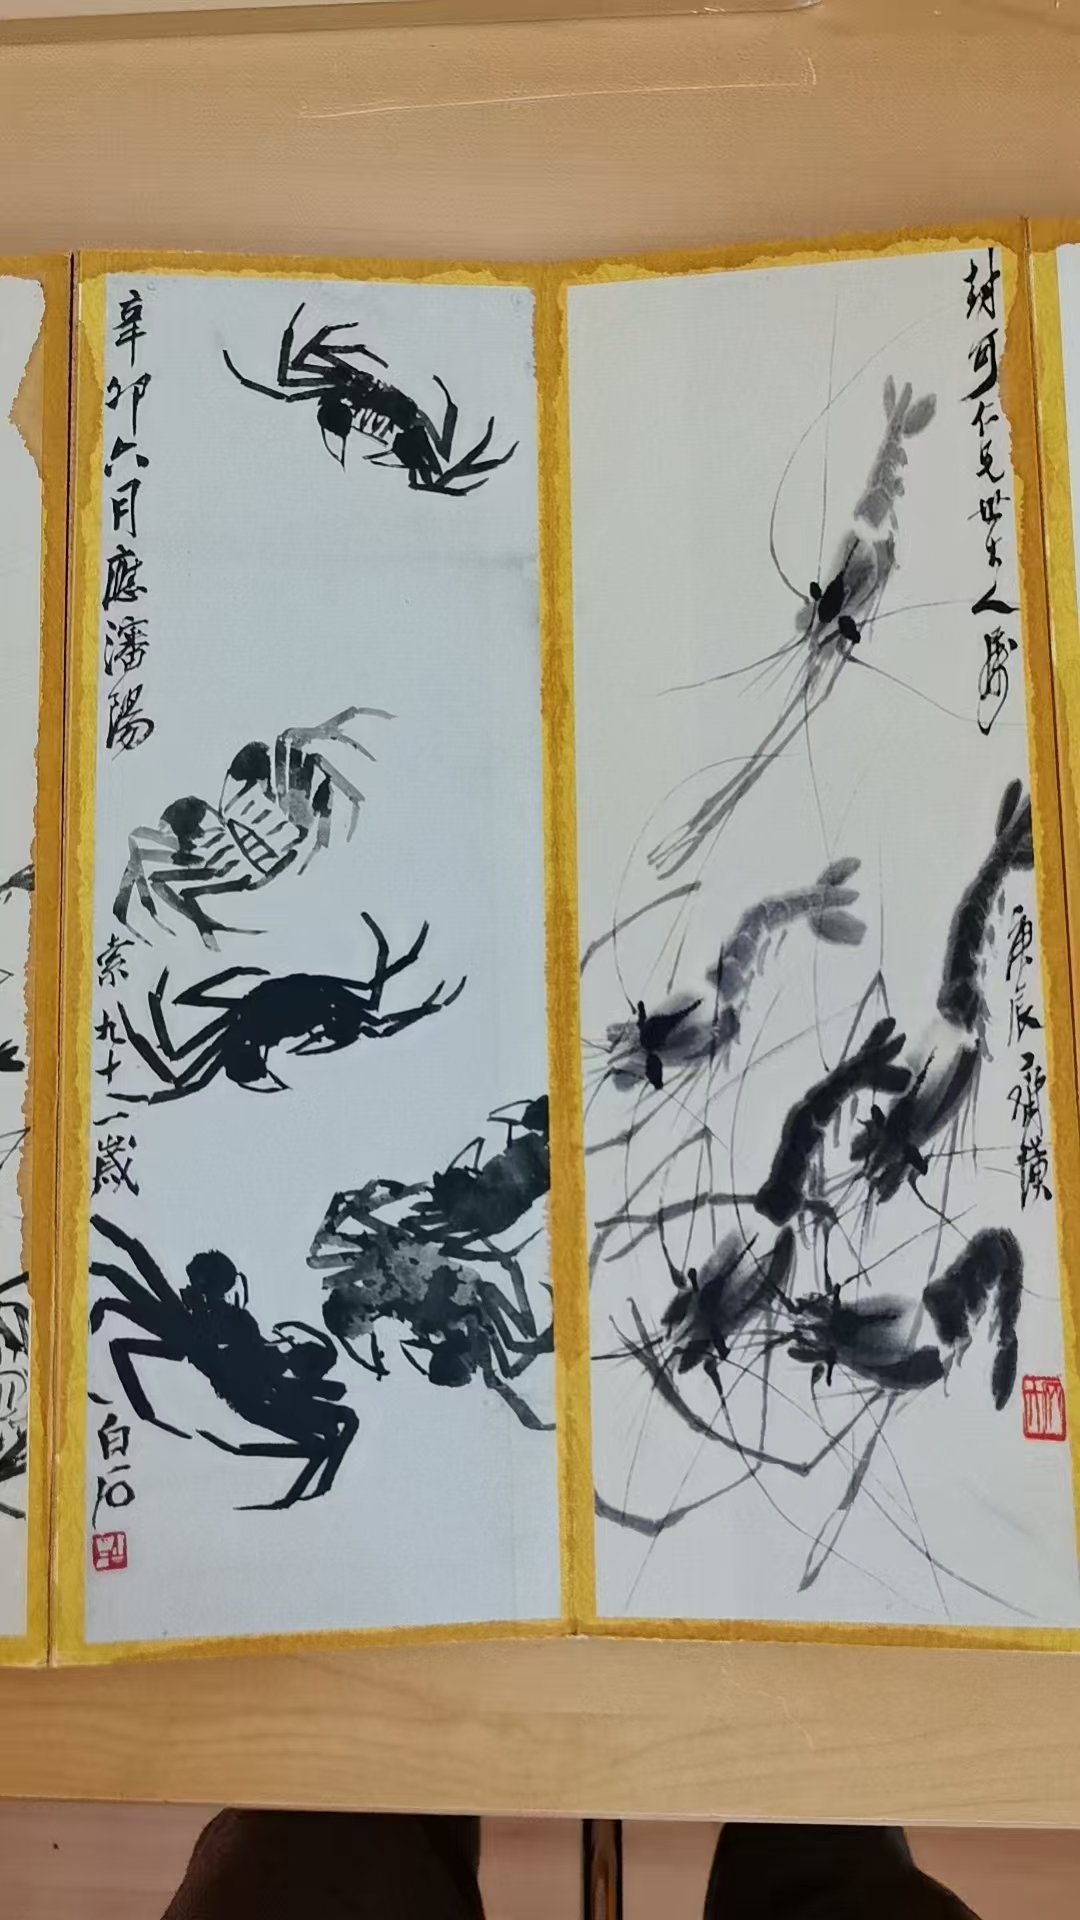 封可仁兄世大人
庚辰 齊璜
辛卯六月應瀋陽
索 九十一歲
白石